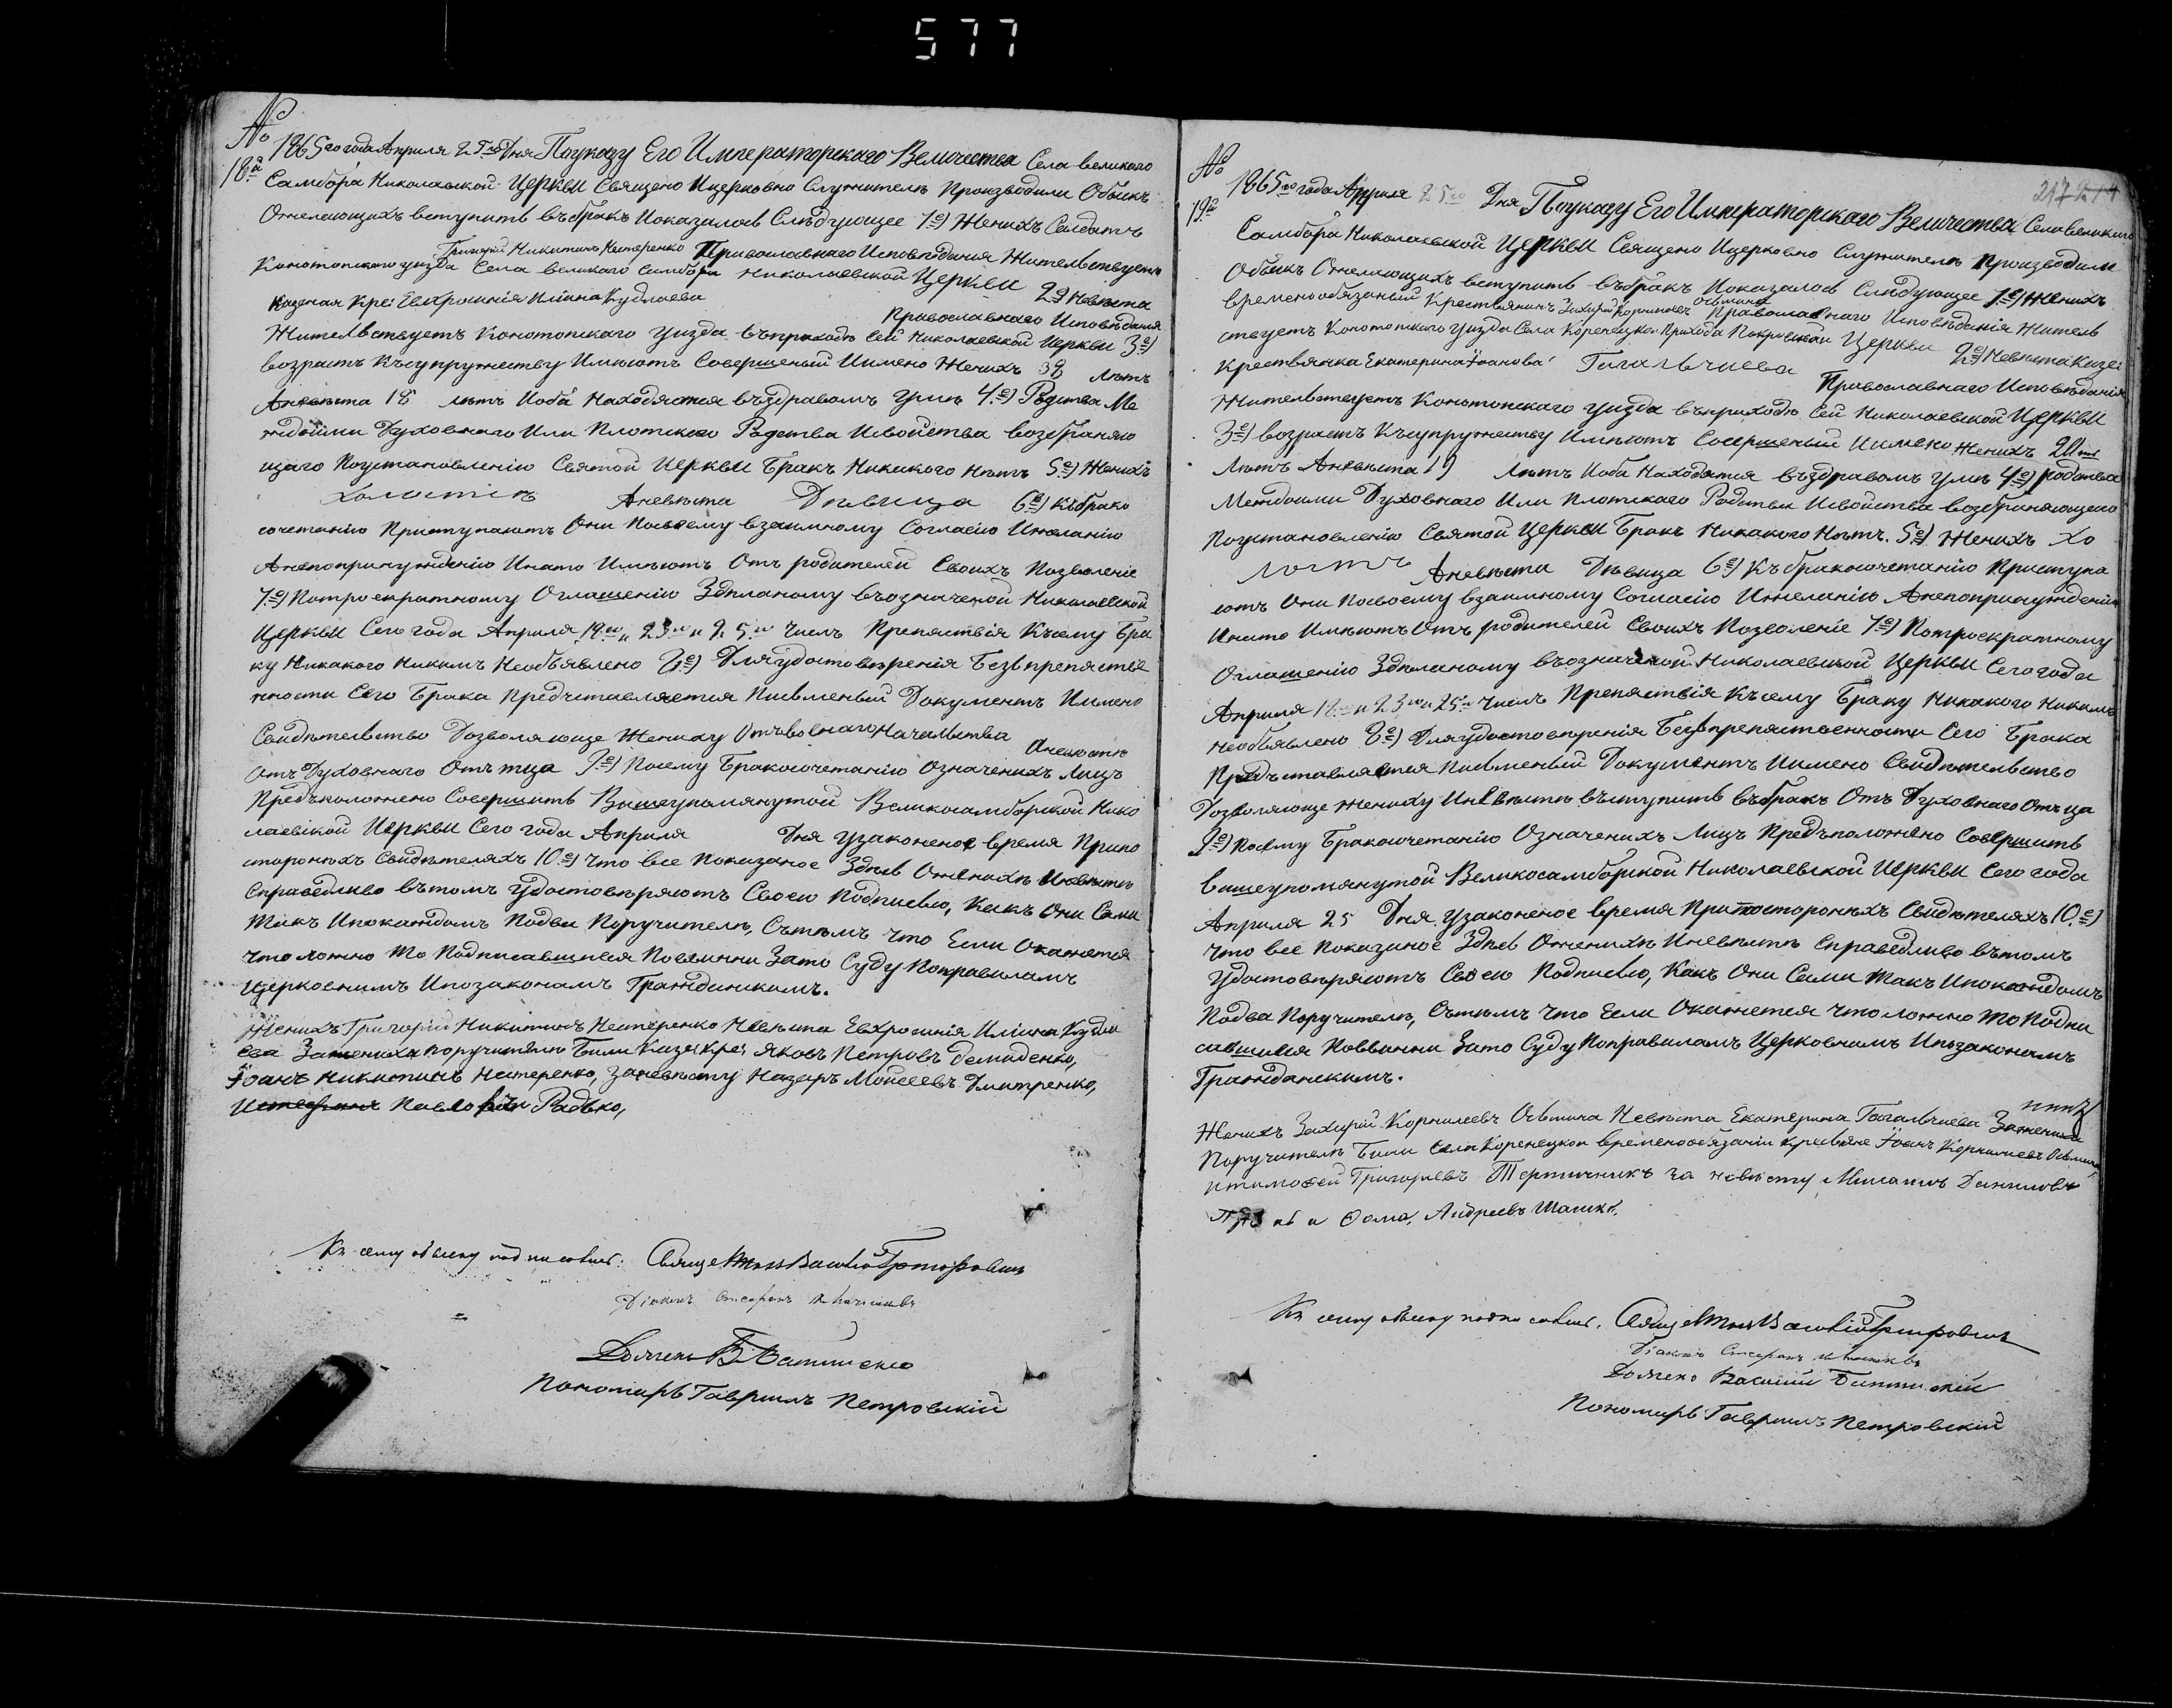 577
№
18й 1865го года Апреля 25го Дня Поуказу Его Императорскаго Величества Села великого
Самбора Николаевской Церкви Священо Ицерковно Служителѣ Производили Обыскъ
Ожелающихъ вступить въбракъ Иоказалось Слѣдующее 1е) Женихъ Солдатъ
Григорій Никитинъ Нестеренко Православнаго Исповѣданія Жительствуетъ
Конотопскаго уизда Села великого Самбора Николаевской Церкви 2е) Невѣста
Казеная Кре: Евфросинія Илиина Кудлаева Православнаго Исповѣданія
Жительствуетъ Конотопскаго уизда въприходѣ Сей Николаевской Церкви 3е)
возрастъ Късупружеству Имѣютъ Совершеный Иимено Женихъ лѣтъ
Аневѣста 18 лѣтъ Иоба Находятся въздравомъ умѣ 4е) Родства Ме
ждоими Духовнаго Или Плотскаго Родства Исвойства возбраняю
щаго Поустановленію Святой Церкви Бракъ Никакого Нѣтъ 5е) Женихъ
холостъ Аневѣста Дѣвица 6е) Къбрако
сочетанію Приступаютъ Они Посвоему взаимному Согласію Ижеланію
Анепопринужденію Инато Имѣютъ Отъ родителей Своихъ Позволеніе
7е) Потроекратному Оглашенію Здѣланому въозначеной Николаевской
Церкви Сего года Апреля 18го и 23го и 25го Числъ Препяствія Късему Бра
ку Никакого Никимъ Необъявлено 8е) Дляудостовѣренія Безвпрепястве
нности Сего Брака Предъставляется Писменый Документъ Иимено
Свидѣтельство Дозволяюще Жениху Отъвоеннаго Началства Аневѣстѣ
отъ Духовнаго Отъца 9е) Посему Бракосочетанію Означенихъ Лицъ
Предположено Совершить Вишеупомянутой Великосамборской Нико
лаевской Церкви Сего года Апреля Дня узаконеное время Припо
стороннхъ Свидѣтеляхъ 10е) Что все Показаное Здѣсь Оженихѣ Иневѣстѣ
Справедливо вътомъ Удостовѣряютъ Своею Подписью, Какъ Они Сами
Такъ Ипокаждомъ Подва Поручителѣ, Сътѣмъ Что Если Окажется
Что ложно То Подписавшиеся Повинни Зато Суду Поправиламъ
Церковнимъ Ипозаконамъ Гражданскимъ.
Женихъ Григорій Никитинъ Нестеренко Невѣста Евхросинія Илиина Кудла
ева Зажениха поручителѣ Были Казен Кре: Яковъ Петровъ Демиденко,
Іоанъ Никитинъ Нестеренко, Заневѣсту Назаръ Моисеевъ Дмитренко,
Истефанъ Павловичъ Радько,
Къ сему обыску подписались: Священикъ Василій
Діаконъ Стефанъ
Дьячекъ В.
Пономарь Гавріилъ Петровскій
217
№
19й 1865го года Апреля 25го Дня Поуказу Его Императорскаго Величества Села великого
Самбора Николаевской Церкви Священо Ицерковно Служителѣ Производили
Обыскъ Ожелающихъ вступить въбракъ Иоказалось Слѣдующее 1е) Женихъ
временообязаный Крествянинъ Захарій Корнилиевъ Осьмина Православнаго Исповѣданія Житель
ствуетъ Конотопскаго уизда Села Коренецкои Прихода Покровской Церкви 2е) Невѣста Казе:
Крествянка Екатерина Іоанова Гагальчиева Православнаго Исповѣданія
Жительствуетъ Конотопскаго уизда въприходѣ Сей Николаевской Церкви
3е) возрастъ Късупружеству Имѣютъ Совершеный Иимено Женихъ
Лѣтъ Аневѣста 19 лѣтъ Иоба Находятся въздравомъ умѣ 4е) родства
Междоими Духовнаго Или Плотскаго Родства Исвойства возбраняющего
Поустановленію Святой Церкви Бракъ Никакого Нѣтъ. 5е) Женихъ Хо
лостъ Аневѣста Дѣвица 6е) Къбракосочетанію Приступа
ютъ Они Посвоему взаимному Согласію Ижеланію Анепопринужденію
Инато Имѣютъ Отъ родителей Своихъ Позволеніе 7е) Потроекратному
Оглашенію Здѣланому въозначеной Николаевской Церкви Сего года
Апреля 18го и 23го и 25го Числъ Препяствія Късему Браку Никакого Никимъ
Необъявлено 8е) Дляудостовѣренія Безвпрепяственности Сего Брака
Предъставляется Писменый Документъ Иимено Свидѣтельство
Дозволяюще Жениху Иневѣстѣ въступить въбракъ Отъ Духовнаго Отъца
9е) Посему Бракосочетанію Означенихъ Лицъ Предъположено Совершить
вишеупомянутой Великосамборской Николаевской Церкви Сего года
Апреля 25 Дня узаконеное время Припосторонхъ Свидѣтеляхъ 10е)
Что все Показаное Здѣсь Оженихѣ Иневѣстѣ Справедливо вътомъ
Удостовѣряютъ Своею Подписью, Какъ Они Сами Такъ Ипокаждомъ
Подва Поручителѣ, Сътѣмъ Что Если Окажется Что ложно То Подпи
савшиеся Повинни Зато Суду Поправиламъ Церковнимъ Ипозаконамъ
Гражданскимъ.
Женихъ Захарій Корнилиевъ Осьмина Невѣста Екатерина Гагальчиева Зажениха
Поручителѣ Были Села Коренецкои временообязаніи Кресвяне Іоанъ Корнилиевъ Осьмина,
итимофей Григориевъ Тертичникъ за невѣсту Даниловъ
и Фома Андреевъ Машко.
Къ сему обыску подписались. Священикъ Василій
Діаконъ Стефанъ
Дьячекъ Василий
Пономарь Гавріилъ Петровскій